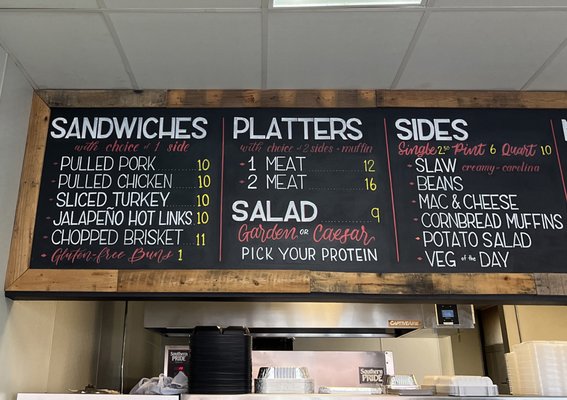 SANDWICHES
with choice of 1 side
- PULLED PORK 10
- PULLED CHICKEN 10
- SLICED TURKEY 10
- JALAPEÑO HOT LINKS 10
- CHOPPED BRISKET 11
- Gluten-free Buns 1
PLATTERS
with choice of 2 sides + muffin
- 1 MEAT 12
- 2 MEAT 16
SALAD 9
Garden OR Caesar
PICK YOUR PROTEIN
SIDES
Single 2.50 Pint 6 Quart 10
- SLAW creamy-carolina
- BEANS
- MAC & CHEESE
- CORNBREAD MUFFINS
- POTATO SALAD
- VEG of the DAY
CAPTIVEAIRE
Southern PRIDE
Southern PRIDE